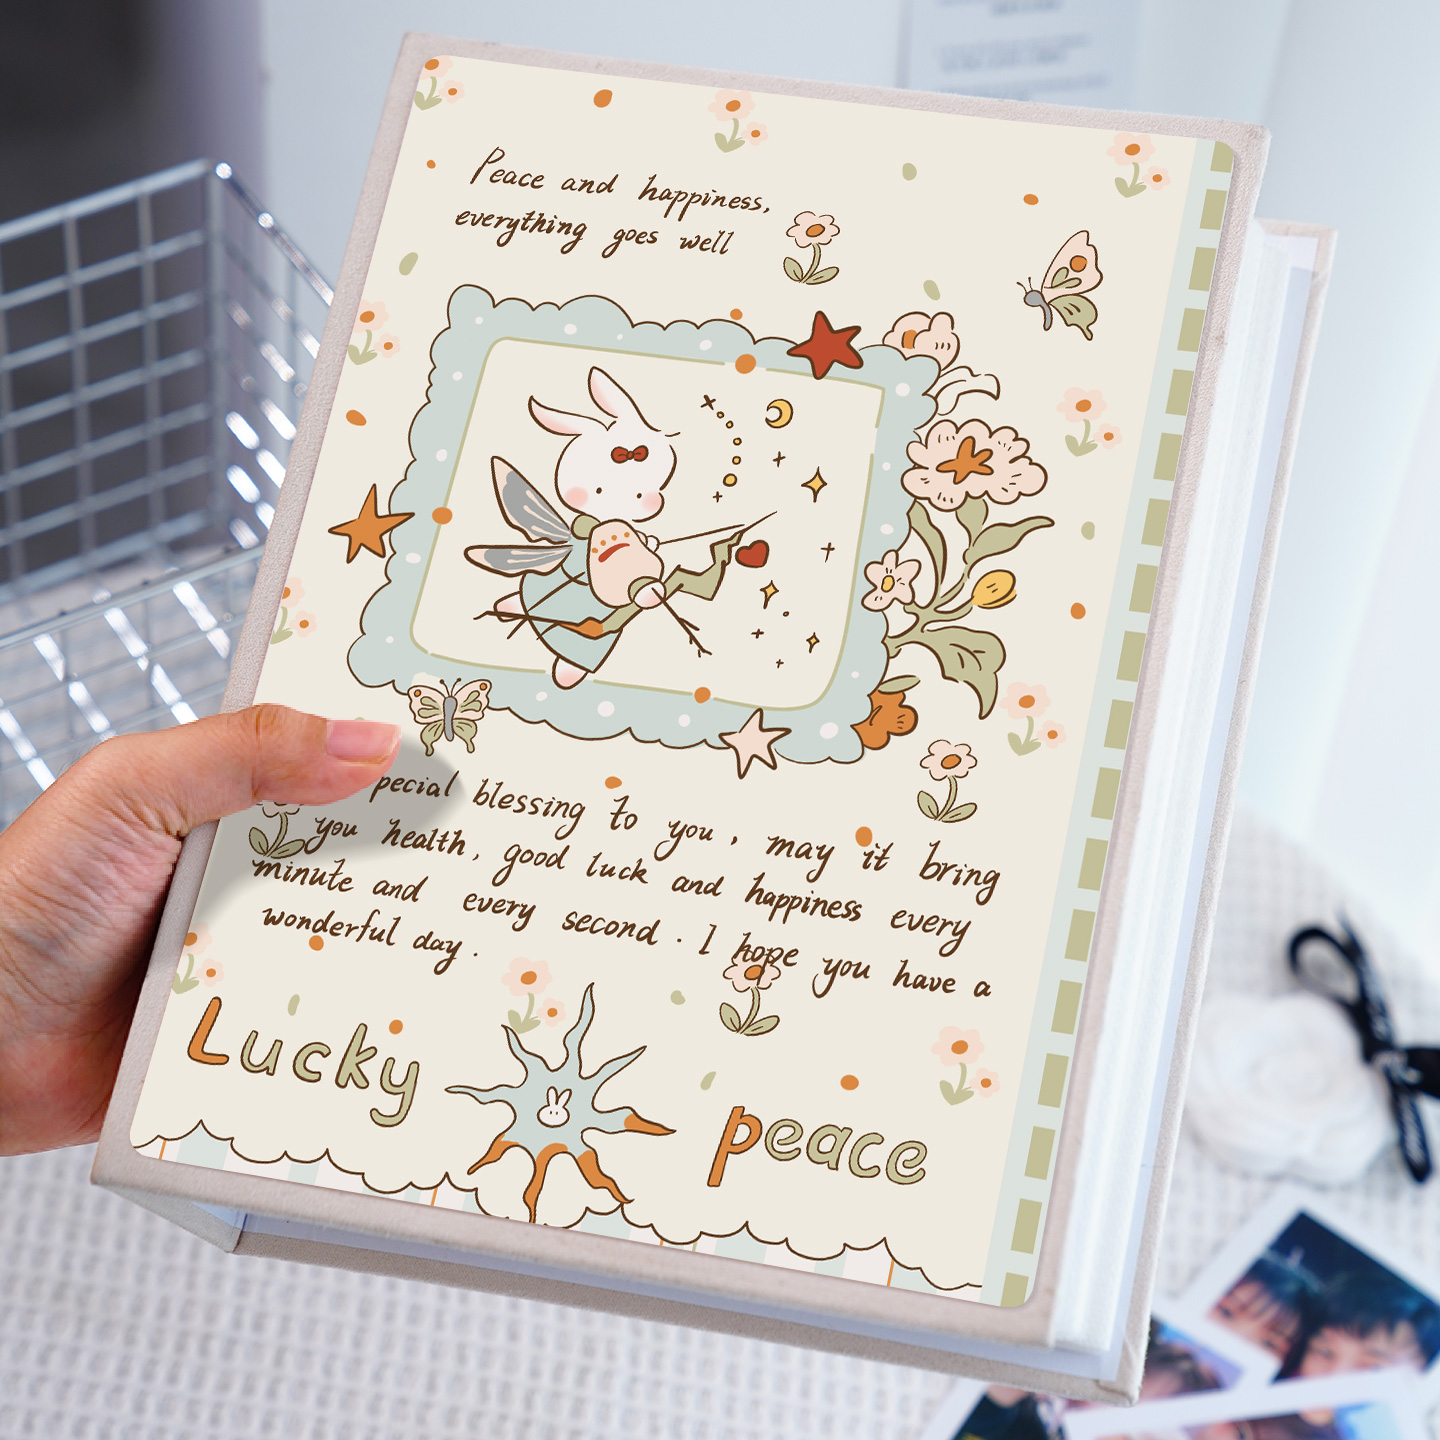 Peace and happiness,
everything goes well
pecial blessing to you, may it bring
you health, good luck and happiness every
minute and every second. I hope you have a
wonderful day.
Lucky peace